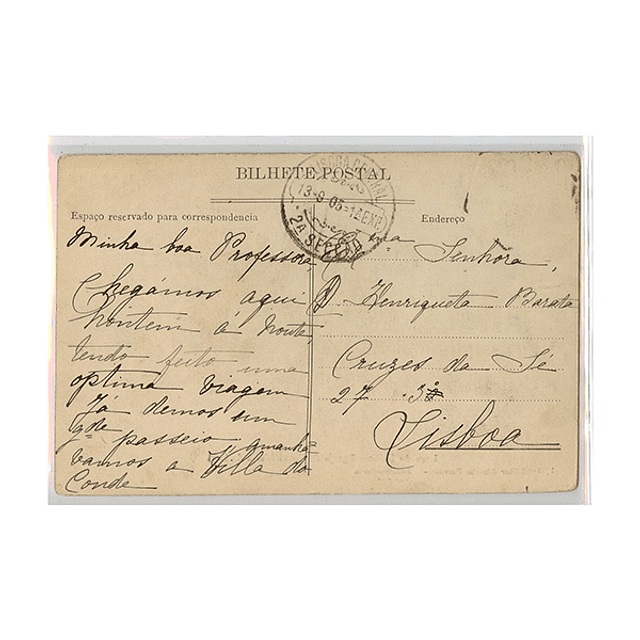 BILHETE POSTAL
Espaço reservado para correspondencia
Endereço
13-9-05
2A SECÇÃO
Minha boa Professora
Chegámos aqui
hontem á noute
tendo feito uma
optima viagem
Já demos um
gde passeio amanhã
vamos a Villa do
Conde
Senhora,
D. Henriqueta Barata
Cruzes da Sé
27 3º
Lisboa